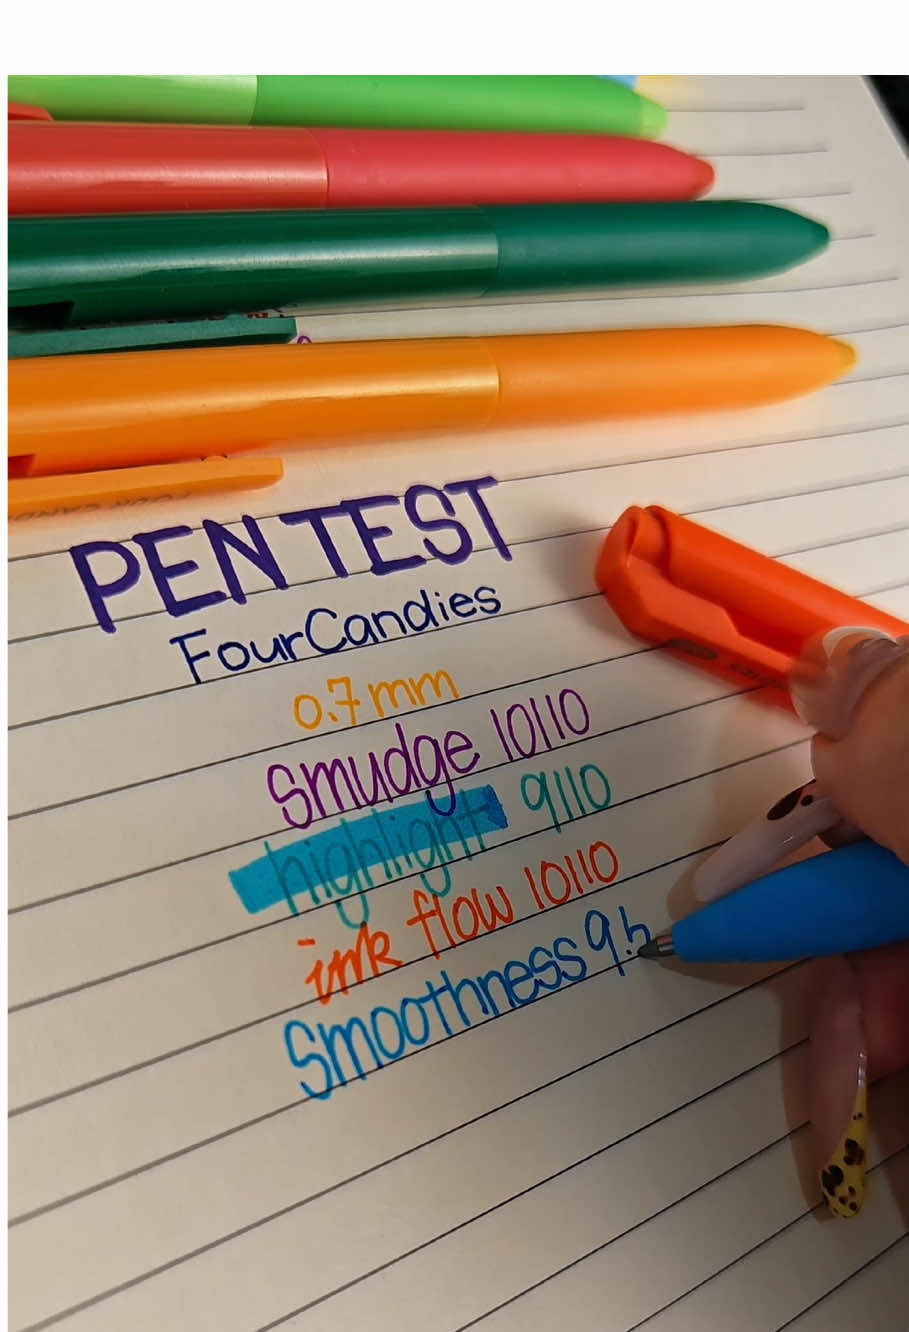 PEN TEST
FourCandies
0.7mm
Smudge 10/10
highlight 9/10
ink flow 10/10
Smoothness 9.5